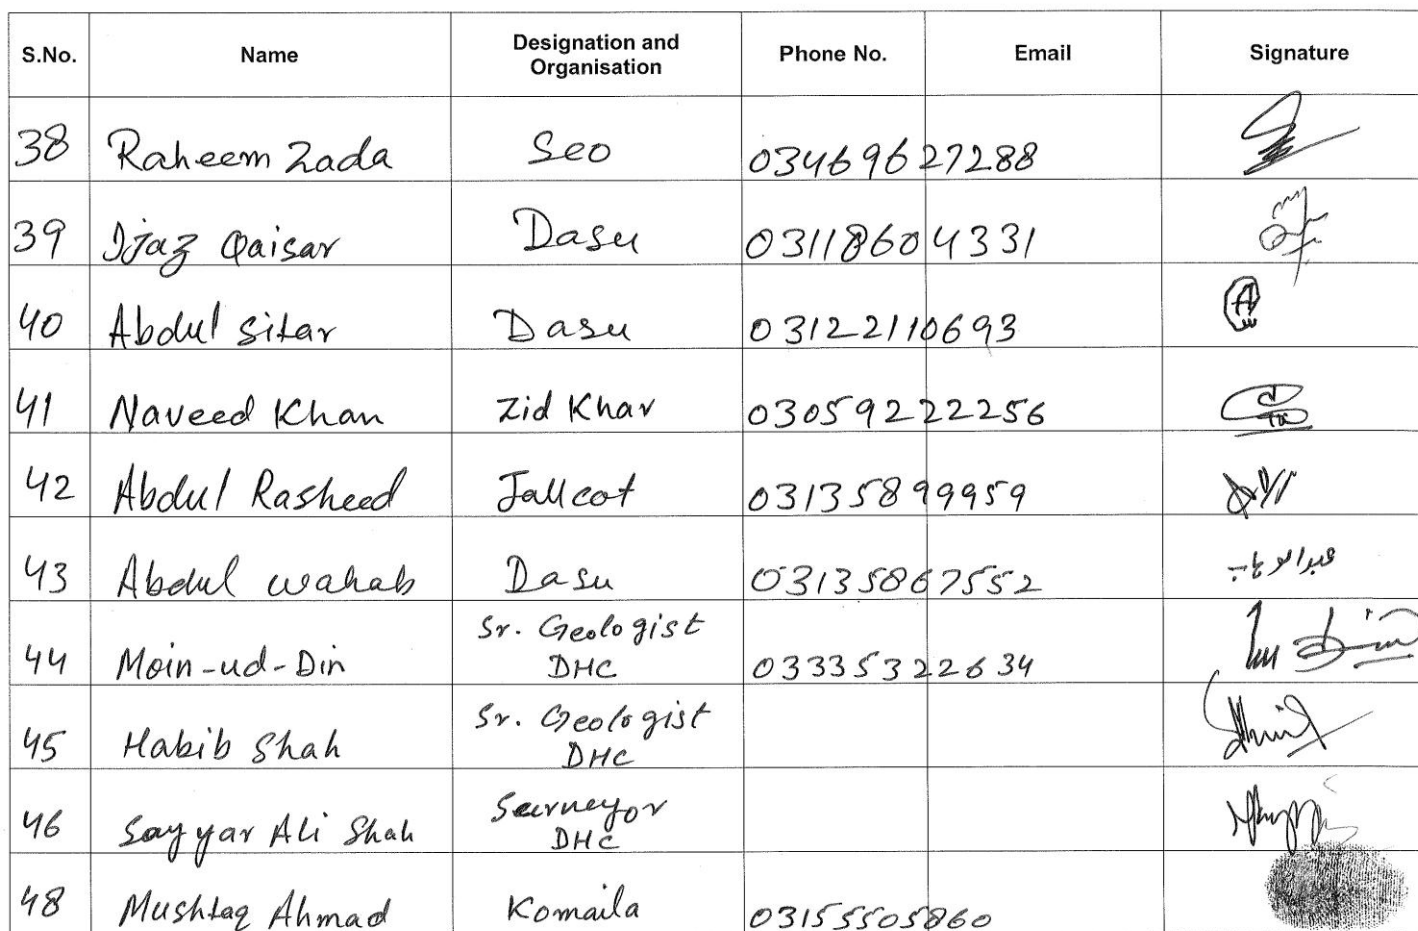 S.No. Name Designation and Organisation Phone No. Email Signature
38 Raheem Zada Seo 03469627288
39 Ijaz Qaisar Dasu 03118604331
40 Abdul Sitar Dasu 03122110693
41 Naveed Khan Zid Khar 03059222256
42 Abdul Rasheed Jallcot 03135899959
43 Abdul wahab Dasu 03135867552 عبدالوہاب
44 Moin-ud-Din Sr. Geologist DHC 03335322634
45 Habib Shah Sr. Geologist DHC
46 Sayyar Ali Shah Surveyor DHC
48 Mushtaq Ahmad Komaila 03155505860